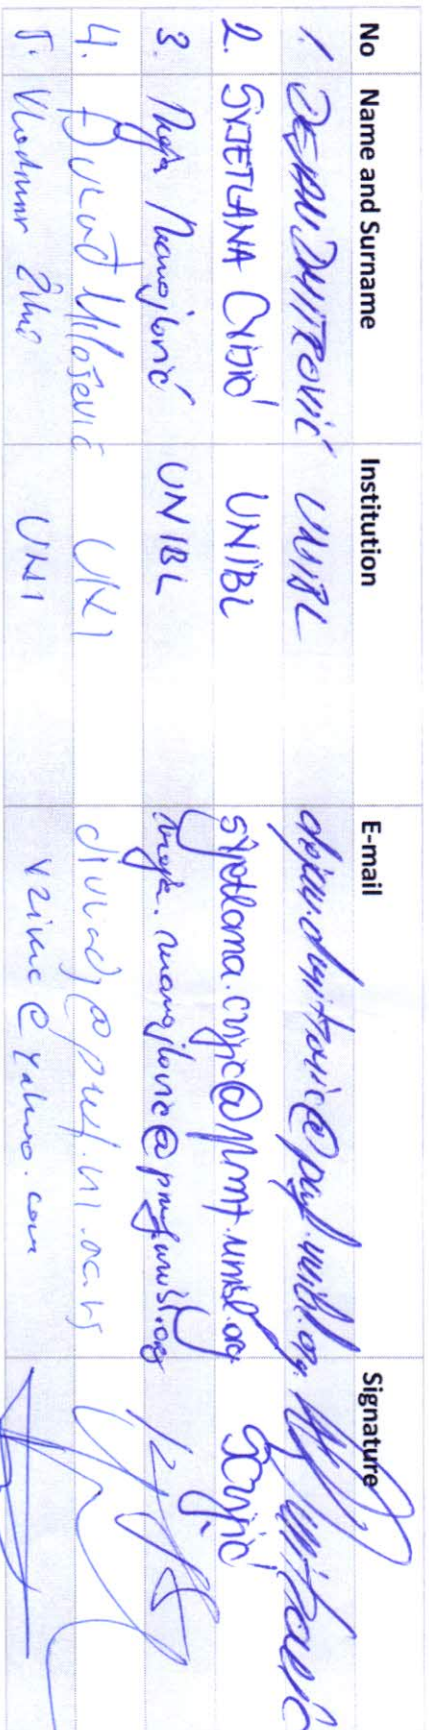 No Name and Surname Institution E-mail Signature
1. DEJAN DMITROVIĆ UNIBL dejan.dmitrovic@pmf.unibl.org Dmitrović
2. SVJETLANA CVIJIĆ UNIBL svjetlana.cvijic@pmf.unibl.org SCvijić
3. Maja Manojlović UNIBL maja.manojlovic@pmf.unibl.org
4. Đurađ Milošević UNI djuradj@pmf.ni.ac.rs
5. Vladimir UNI vzikic@yahoo.com